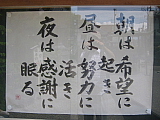 朝は希望に
起き
昼は努力に
活き
夜は感謝に
眠る